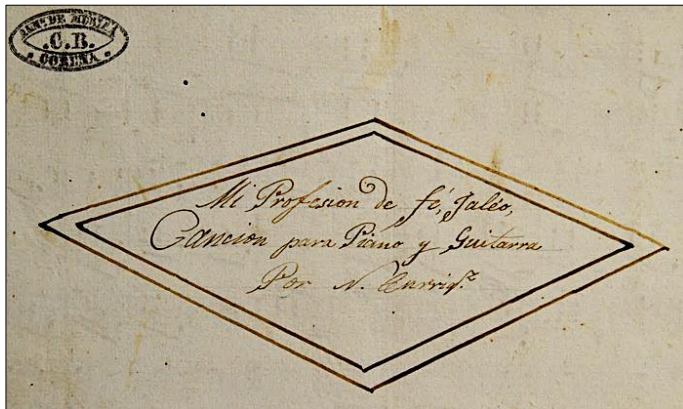 ALM. DE MUSICA
.C.B.
CORUÑA
Mi Profesion de fé, Jaléo,
Cancion para Piano y Guitarra
Por N.